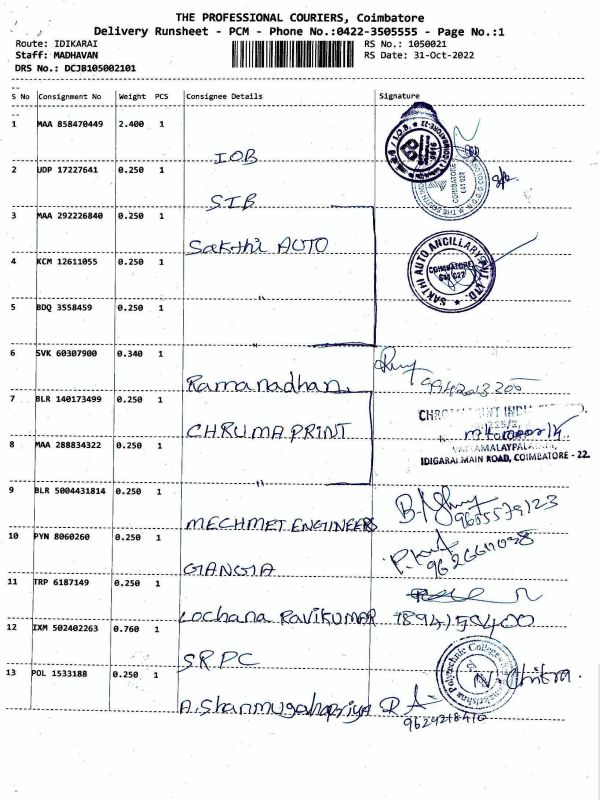 THE PROFESSIONAL COURIERS, Coimbatore
Delivery Runsheet - PCM - Phone No.:0422-3505555 - Page No.:1
Route: IDIKARAI RS No.: 1050021
Staff: MADHAVAN RS Date: 31-Oct-2022
DRS No.: DCJB105002101
S No Consignment No Weight PCS Consignee Details Signature
1 MAA 858470449 2.400 1
IOB
2 UDP 17227641 0.250 1
SIB
COIMBATORE
641 022
3 MAA 292226840 0.250 1
Sakthi AUTO
SAKTHI AUTO ANCILLARY PVT. LTD.
COIMBATORE
641 022
4 KCM 12611055 0.250 1
"
5 BDQ 3558459 0.250 1
"
6 SVK 60307900 0.340 1
Ramanadhan.
7 BLR 140173499 0.250 1
CHRUMAPRINT
8 MAA 288834322 0.250 1
IDIGARAI MAIN ROAD, COIMBATORE - 22.
"
9 BLR 5004431814 0.250 1
MECHMET ENGINEERS 9605579123
10 PYN 8060260 0.250 1
GANGA
11 TRP 6187149 0.250 1
Lochana Ravikumar
12 IXM 502402263 0.760 1
SRPC
N. Chitra.
13 POL 1533188 0.250 1
A. Shanmugahapriya
9624218410